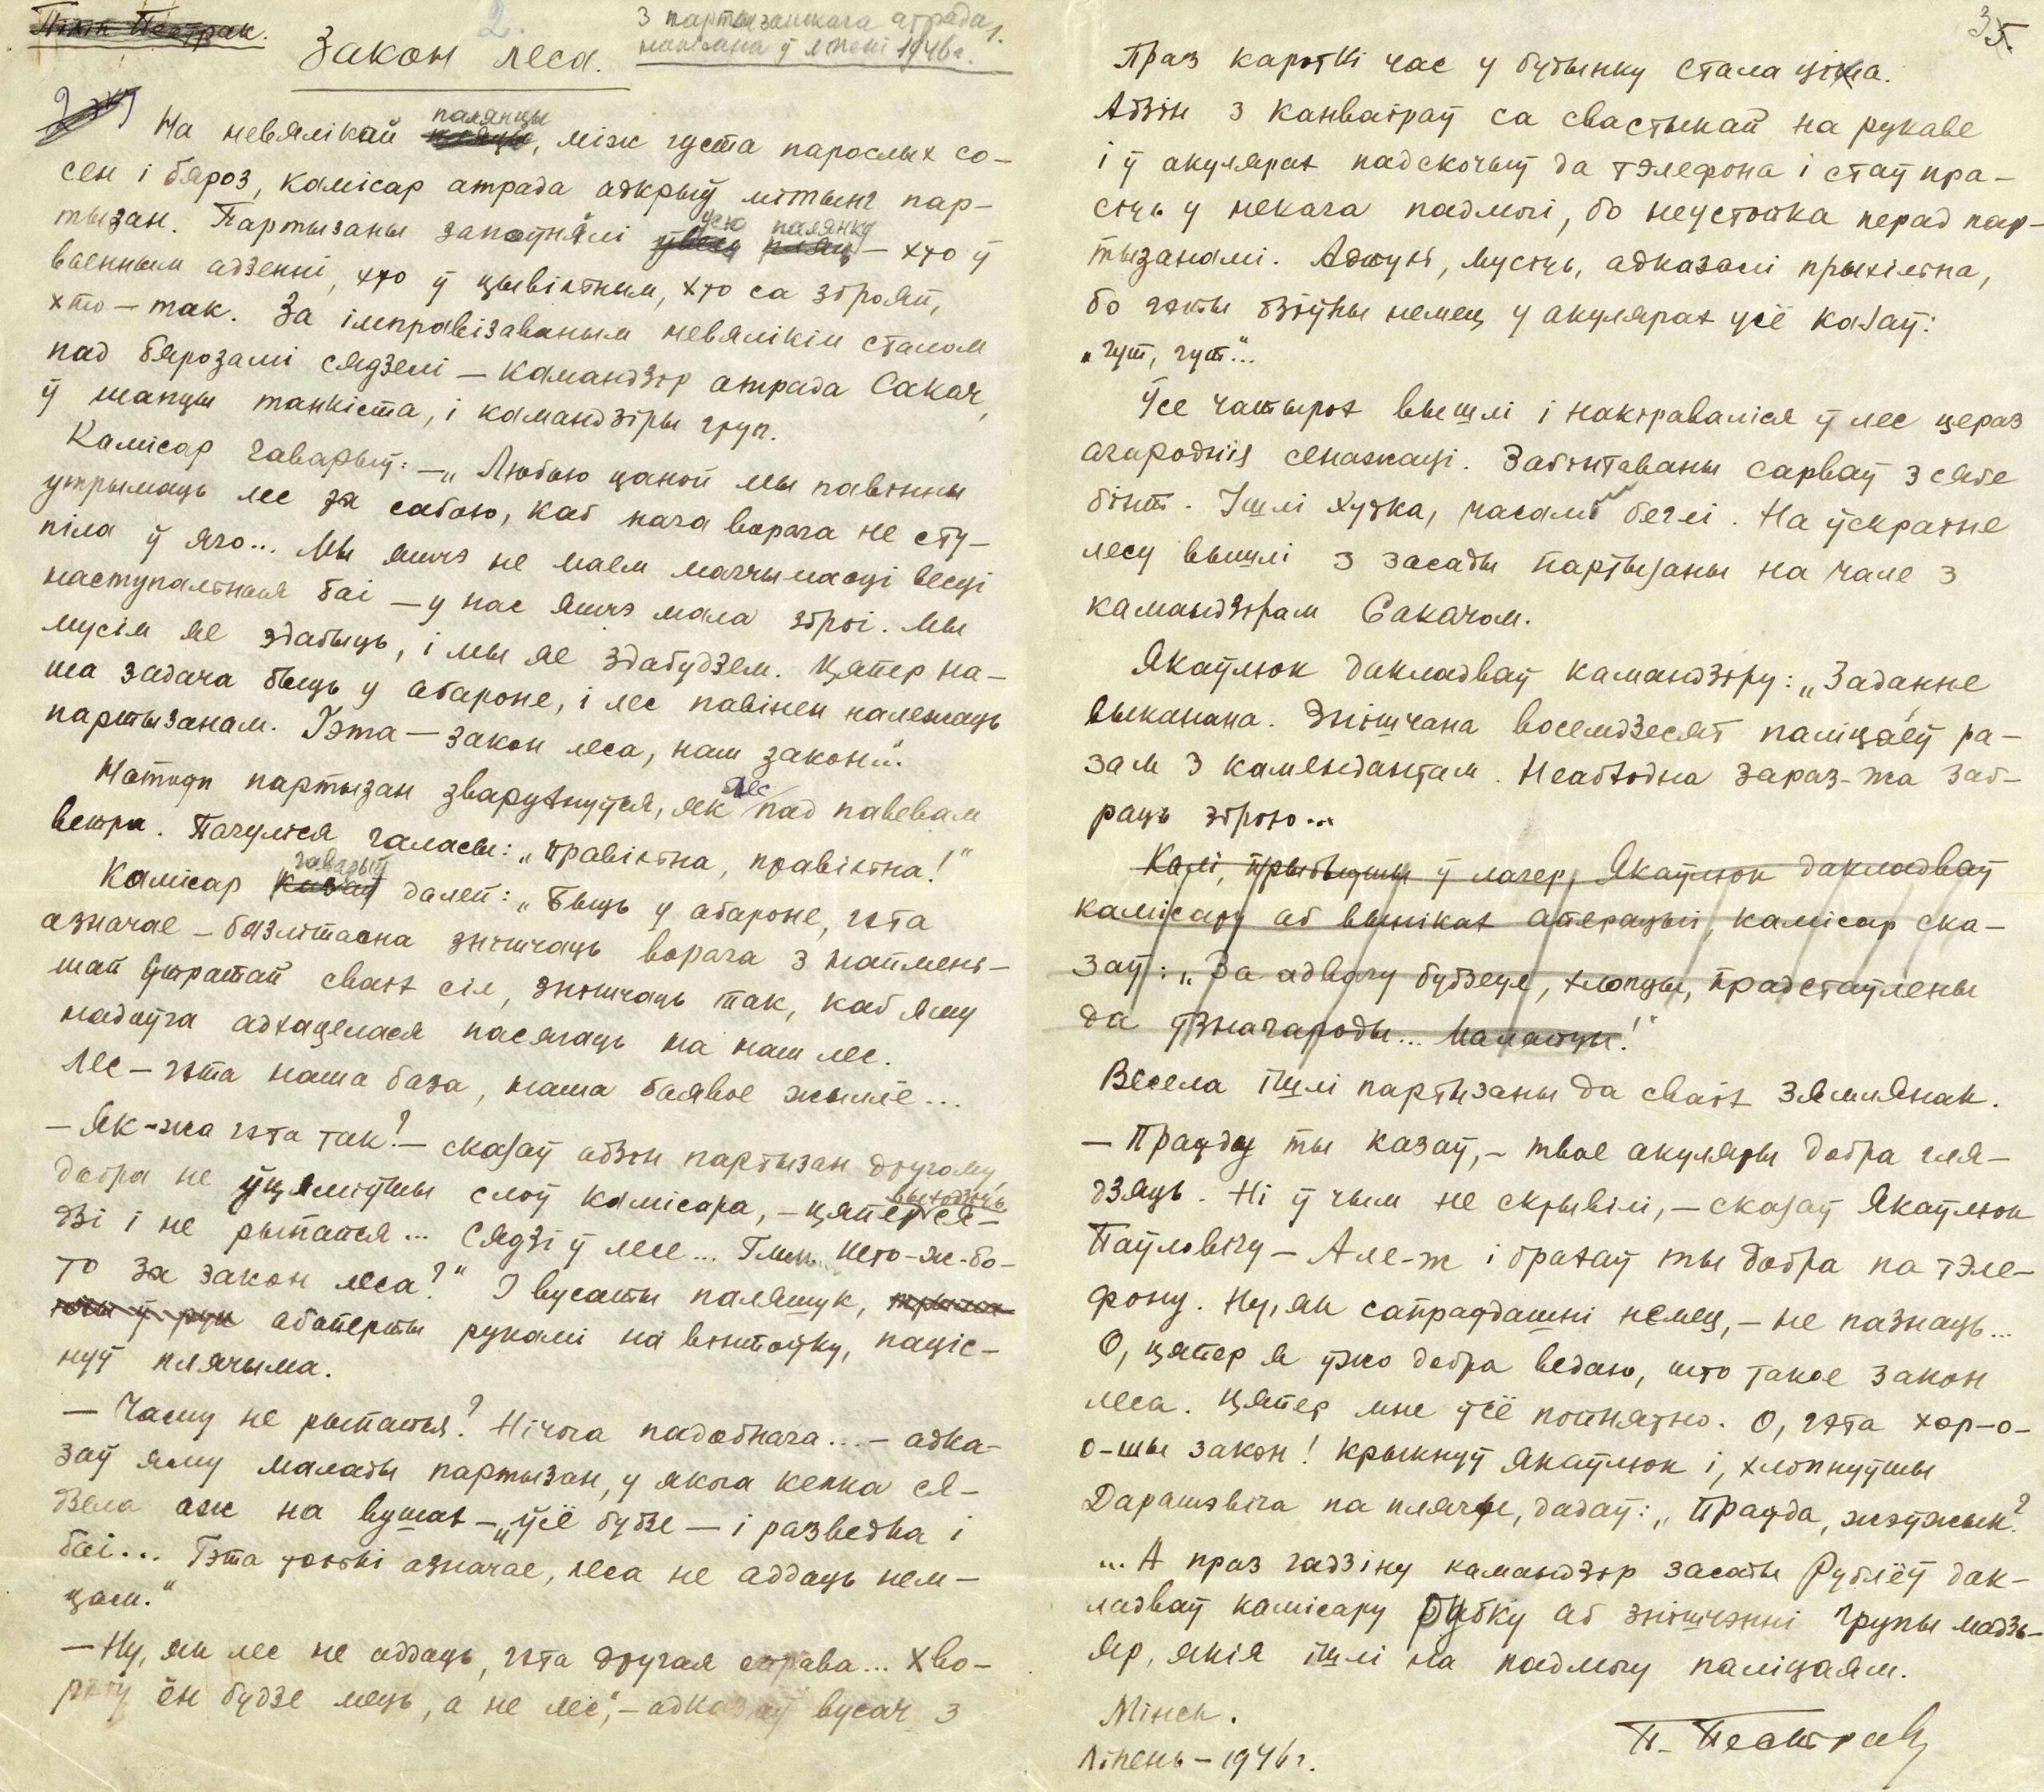 Пілін Пестрак.
2.
З партызанскага атрада,
напісана ў ліпені 1946 г.
Закон леса.
На невялікай палянцы, між густа парослых со-
сен і бяроз, камісар атрада адкрыў мітынг пар-
тызан. Партызаны запоўнялі ўсю палянку — хто ў
ваенным адзенні, хто ў цывільным, хто са зброяй,
хто — так. За імправізаваным невялікім сталом
пад бярозамі сядзелі — камандзір атрада Сакач,
ў шапцы танкіста, і камандзіры груп.
Камісар гаварыў: — „Любою цаной мы павінны
утрымаць лес за сабою, каб нага ворага не сту-
піла ў яго... Мы яшчэ не маем магчымасці весці
наступальныя баі — у нас яшчэ мала зброі. Мы
мусім яе здабыць, і мы яе здабудзем. Цяпер на-
ша задача быць у абароне, і лес павінен належаць
партызанам. Гэта — закон леса, наш закон..."
Натоўп партызан зварухнуўся, як лес пад павевам
ветра. Пачуліся галасы: „правільна, правільна!"
Камісар казаў гаварыў далей: „Быць у абароне, гэта
азначае — бязлітасна знішчаць ворага з наймень-
шай ўтратай сваіх сіл, знішчаць так, каб яму
надоўга адхацелася пасягаць на наш лес.
Лес — гэта наша база, наша баявое жыццё...
— Як-жа гэта так? — сказаў адзін партызан другому,
добра не ўцяміўшы слоў камісара, — цяпер выходзіць ся-
дзі і не рыпайся... Сядзі ў лесе... Гмм.. што-ж-бо-
то за закон леса?" І вусаты паляшук,
абапёрты рукамі на вінтоўку, паціс-
нуў плячыма.
— Чаму не рыпайся? Нічога падобнага... — адка-
заў яму малады партызан, у якога кепка ся-
дзела аж на вушах — „ўсё будзе — і разведка і
баі... Гэта толькі азначае, леса не аддаць нем-
цам."
— Ну, як лес не аддаць, гэта другая справа... Хво-
робу ён будзе мець, а не лес", — адказаў вусач з
35.
Праз кароткі час у будынку стала ціха.
Адзін з канваіраў са свастыкай на рукаве
і ў акулярах падскочыў да тэлефона і стаў пра-
сіць у некага падмогі, бо неустойка перад пар-
тызанамі. Адтуль, мусіць, адказалі прыхільна,
бо гэты дзіўны немец у акулярах усё казаў:
„гут, гут"...
Ўсе чатырох вышлі і накіраваліся ў лес цераз
агароднія сенажаці. Забінтаваны сарваў з сябе
бінт. Ішлі хутка, часам беглі. На ўскрайне
лесу вышлі з засады партызаны на чале з
камандзірам Сакачом.
Якаўлюк дакладваў камандзіру: „Заданне
выканана. Знішчана восемдзесят паліцаяў ра-
зам з камендантам. Неабходна зараз-жа заб-
раць зброю...
Калі, прыбыўшы ў лагер, Якаўлюк дакладваў
камісару аб выніках аперацыі, камісар ска-
заў: „За адвагу будзеце, хлопцы, прадстаўлены
да ўзнагароды... Малайцы!"
Весела ішлі партызаны да сваіх зямлянак.
— Праўду ты казаў, — твае акуляры добра гля-
дзяць. Ні ў чым не скрывілі, — сказаў Якаўлюк
Паўловічу — Але-ж і брахаў ты добра па тэле-
фону. Ну, як сапраўдашні немец, — не пазнаць...
О, цяпер я ўжо добра ведаю, што такое закон
леса. Цяпер мне ўсё понятно. О, гэта хор-о-
о-шы закон! крыкнуў Якаўлюк і, хлопнуўшы
Дарашэвіча па плячы, дадаў: „Праўда, жэўжык?
... А праз гадзіну камандзір засады Рублёў дак-
ладваў камісару Дубку аб знішчэнні групы мадзь-
яр, якія ішлі на падмогу паліцаям.
Мінск.
Ліпень — 1946 г.
П. Пестрак